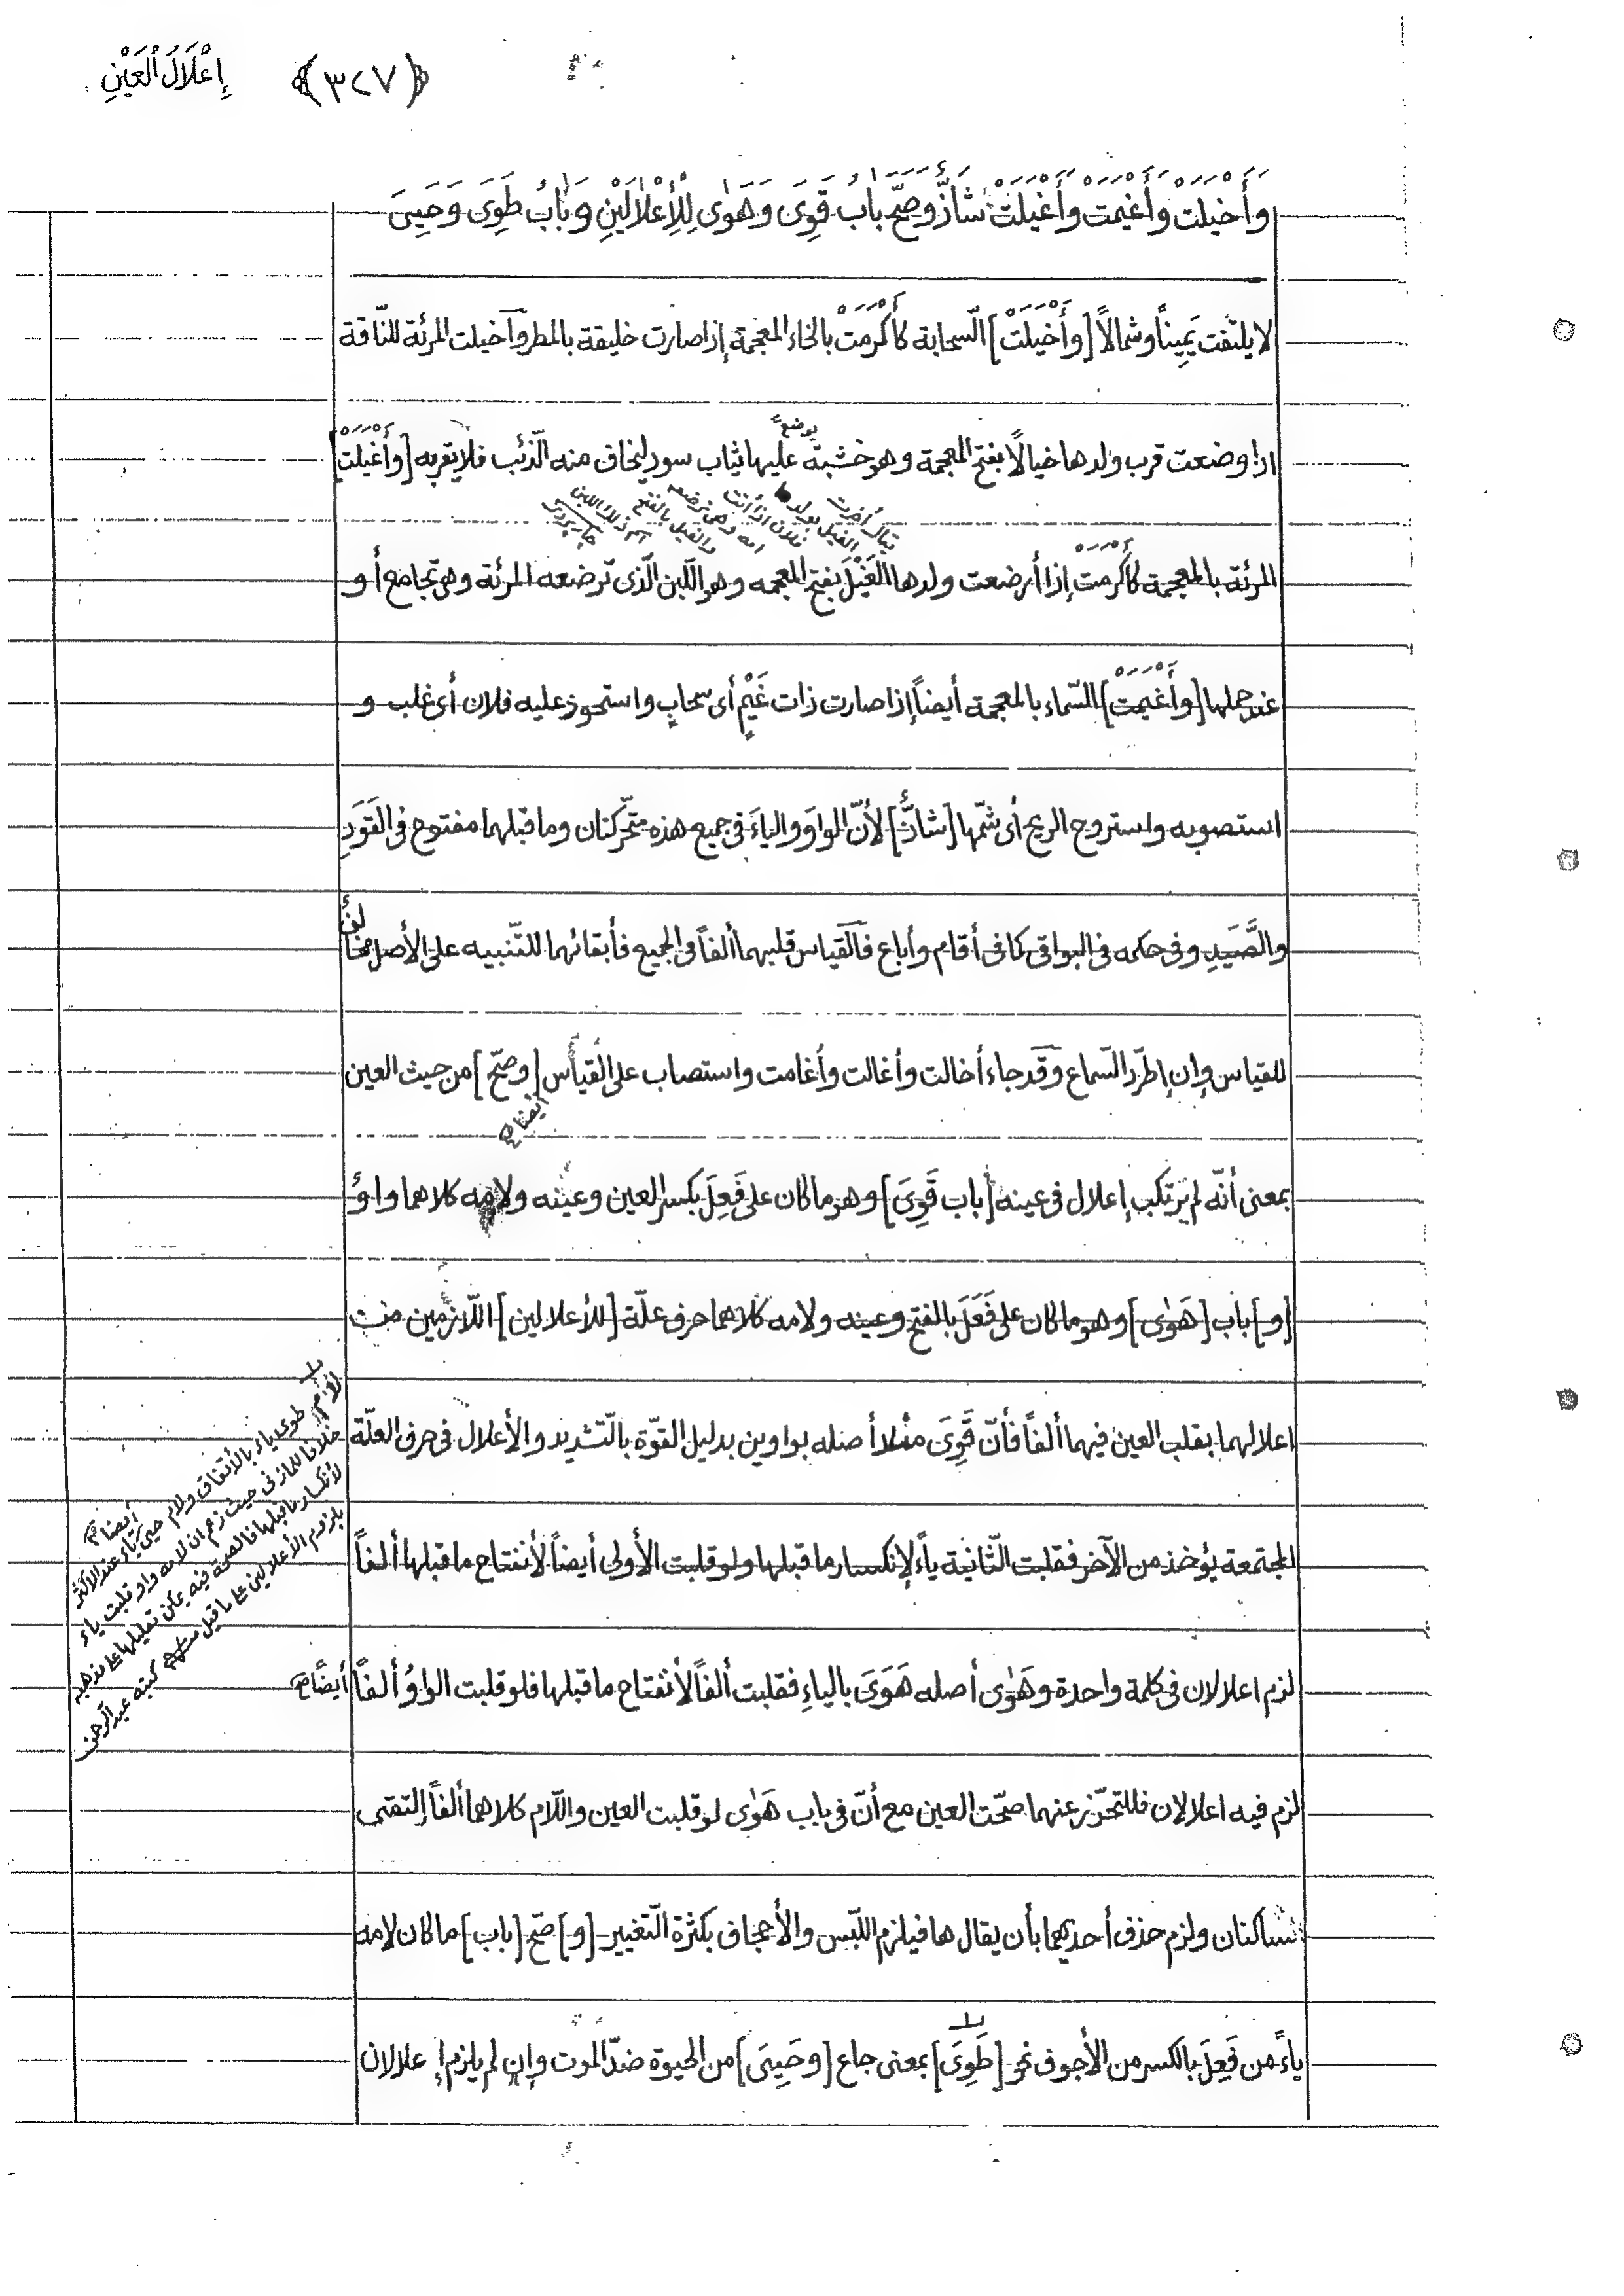 ﴿٣٢٧﴾ إِعْلَالُ الْعَيْنِ
وَأَخْيَلَتْ وَأَغْيَمَتْ وَأَغْيَلَتْ شَاذٌّ وَصَحَّ بَابُ قَوِىَ وَهَوٰى لِلْإِعْلٰالَيْنِ وَبَابُ طَوِىَ وَحَيِىَ
لا يلتفت يَمِيناً وشمالاً [وأَخْيَلَتْ] السّحابة كأكْرَمَتْ بالخاء المعجمة إذا صارت خليقة بالمطر وأخيلت المرئة للنّاقة
اذا وضعت قرب ولدها خيالاً بفتح المعجمة وهو خشبة عليها ثياب سود ليخاف منه الذّئب فلا يقربه [وأَغْيَلَتْ]
يوضع
يقال أضرت الغيل بولد فلان اذا أتت امه وهى ترضعه والغيل بالفتح اسم ذلك اللبن جاربردى
المرئة بالمعجمة كأكْرَمَت إذا أرضعت ولدها الغَيْلَ بفتح المعجمه وهو اللّبن الّذى ترضعه المرئة وهى تجامع أو
عند حملها [وأَغْيَمَتْ] السّماء بالمعجمة أيضاً إذا صارت ذات غَيْمٍ أى سحابٍ واستحوذ عليه فلان أى غلب و
استصوبه واستروح الريح أى شمّها [شاذٌّ] لأنّ الواوَ والياءَ فى جميع هذه متحرّكتان وما قبلهما مفتوح فى القَوَدِ
والصَّيَدِ وفى حكمه فى البواقى كما فى أقام وأباع فالقياس قلبهما ألفاً فى الجميع فأبقائهما للتّنبيه على الأصل مخالفٌ
للقياس وإن إطّرد السّماع وقد جاء أخالت وأغالت وأغامت واستصاب على القياس [وصحّ] من حيث العين
أيضا
بمعنى أنّه لم يرتكب إعلال فى عينه [باب قَوِىَ] وهو ما كان على فَعِلَ بكسر العين وعينه ولامه كلاهما واوٌ
[و] باب [هَوٰى] وهو ما كان على فَعَلَ بالفتح وعينه ولامه كلاهما حرف علّة [للأعلالين] اللّازمين من
اعلالهما بقلب العين فيهما ألفاً فأنّ قَوِىَ مثلا أصله بواوين بدليل القوّة بالتّشديد والأعلال فى حرف العلّة
المجتمعة يؤخذ من الآخر فقلبت الثّانية ياءً لإنكسار ما قبلها ولو قلبت الأولى أيضاً لأنفتاح ما قبلها ألفاً
لزم اعلالان فى كلمة واحدة وهَوٰى أصله هَوَىَ بالياءِ فقلبت ألفاً لأنفتاح ما قبلها فلو قلبت الواوُ ألفاً أيضًا
لزم فيه اعلالان فللتحرّز عنهما صحّت العين مع أنّ فى باب هَوٰى لو قلبت العين واللّام كلاهما ألفاً إلتقى
ساكنان ولزم حذف أحديهما بأن يقال ها فيلزم اللّبس والأجحاف بكثرة التّغيير [و] صحّ [باب] ما كان لامه
ياءً من فَعِلَ بالكسر من الأجوف نحو [طَوِىَ] بمعنى جاع [وحَيِىَ] من الحيوة ضدّ الموت وإن لم يلزم إعلالان
لام طوى ياء بالأتفاق ولام حيى ياء عند الاكثر
خلافا للمازنى حيث زعم ان لامه واو قلبت ياء
لأنكسار ما قبلها فالصحة فيه يمكن تعليلها على مذهبه
بلزوم الأعلالين على ما قيل كتبه عبد الرحمن
أيضا